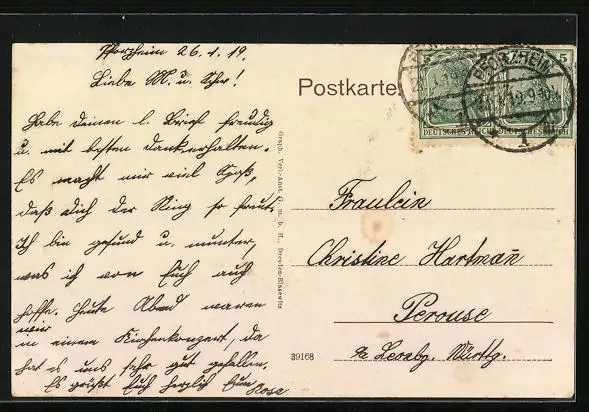 Pforzheim 26.1.19.
Liebe M. u. Schw!
Habe deinen l. Brief freudig
u. mit besten Dank erhalten.
Es macht mir viel Spaß,
daß dich der Ring so freut.
Ich bin gesund u. munter,
was ich von Euch auch
hoffe. Heute Abend waren
wir
in einem Kirchenkonzert, da
hat es uns sehr gut gefallen.
Es grüßt Euch herzlich Eure
Rosa
Graph. Verl.-Anst. G. m. b. H., Dresden-Blasewitz
Postkarte
PFORZHEIM
DEUTSCHES REICH
DEUTSCHES REICH
Fräulein
Christine Hartmann
Perouse
Württg.
39168